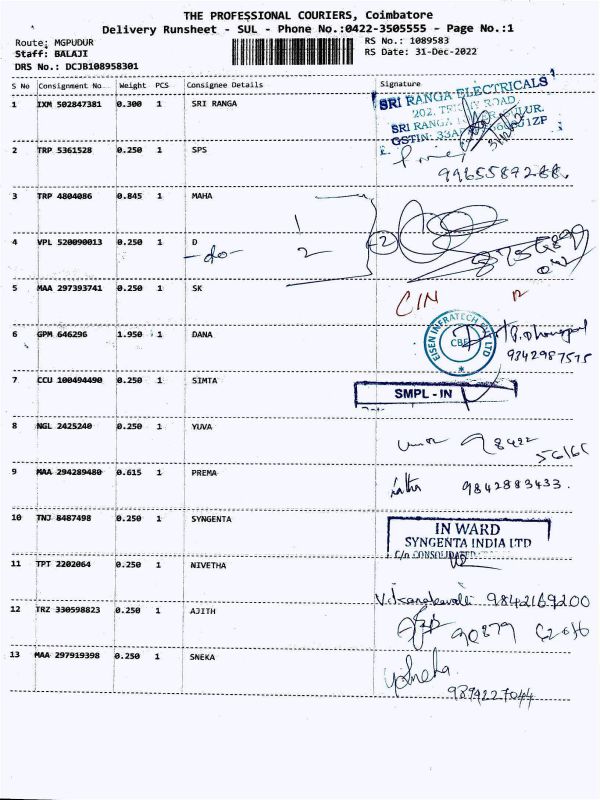 THE PROFESSIONAL COURIERS, Coimbatore
Delivery Runsheet - SUL - Phone No.:0422-3505555 - Page No.:1
Route: MGPUDUR
RS No.: 1089583
Staff: BALAJI
RS Date: 31-Dec-2022
DRS No.: DCJB108958301
S No Consignment No Weight PCS Consignee Details Signature
1 IXM 502847381 0.300 1 SRI RANGA
SRI RANGA ELECTRICALS
202, ROAD
SRI RANGA
GSTIN: 33A
2 TRP 5361528 0.250 1 SPS
9965589288.
3 TRP 4804086 0.845 1 MAHA
1
2
4 VPL 520090013 0.250 1 D
-do-
2
5 MAA 297393741 0.250 1 SK
CIN
6 GPM 646296 1.950 1 DANA
EISEN INFRATECH PVT LTD
CBE
9342987575
7 CCU 100494490 0.250 1 SIMTA
SMPL - IN
8 NGL 2425240 0.250 1 YUVA
98422
56165
9 MAA 294289480 0.615 1 PREMA
9842883433.
10 TNJ 8487498 0.250 1 SYNGENTA
IN WARD
SYNGENTA INDIA LTD
C/o CONSOLIDATED
11 TPT 2202064 0.250 1 NIVETHA
9842169200
12 TRZ 330598823 0.250 1 AJITH
90879
13 MAA 297919398 0.250 1 SNEKA
9894227044